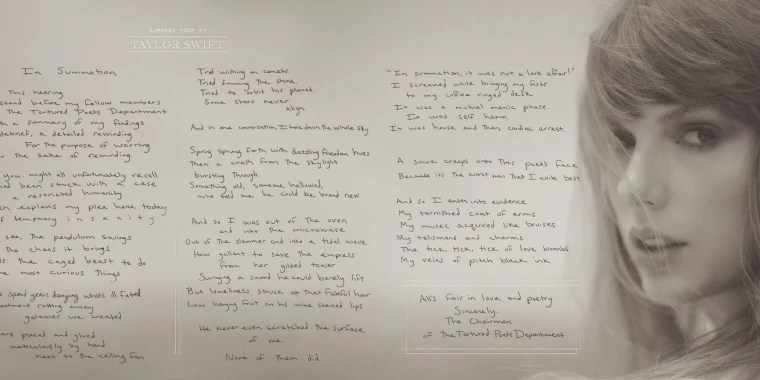 SUMMARY POEM BY
TAYLOR SWIFT
In Summation
this hearing
stand before my fellow members
The Tortured Poets Department
a summary of my findings
debrief, a detailed rewinding
For the purpose of warning
the sake of reminding
you might all unfortunately recall
had been struck with a case
a restricted humanity
explains my plea here today
temporary insanity
see, the pendulum swings
the chaos it brings
the caged beast to do
most curious things
spend years denying what's ill fated
rotting away
galaxies we created
placed and glued
meticulously by hand
next to the ceiling fan
Tried wishing on comets.
Tried dimming the shine.
Tried to orbit his planet.
Some stars never
align.
And in one conversation, I tore down the whole sky
Spring sprung forth with dazzling freedom hues
Then a crash from the skylight
bursting through
Something old, someone hallowed,
who told me he could be brand new
And so I was out of the oven
and into the microwave
Out of the slammer and into a tidal wave
How gallant to save the empress
from her gilded tower
Swinging a sword he could barely lift
But loneliness struck at that fateful hour
Low hanging fruit on his wine stained lips
He never even scratched the surface
of me.
None of them did.
"In summation, it was not a love affair!"
I screamed while bringing my fists
to my coffee ringed desk
It was a mutual manic phase.
It was self harm.
It was house and then cardiac arrest.
A smirk creeps onto this poet's face
Because it's the worst men that I write best.
And so I enter into evidence
My tarnished coat of arms
My muses, acquired like bruises
My talismans and charms
The tick, tick, tick of love bombs
My veins of pitch black ink
All's fair in love and poetry
Sincerely,
The Chairman
of The Tortured Poets Department